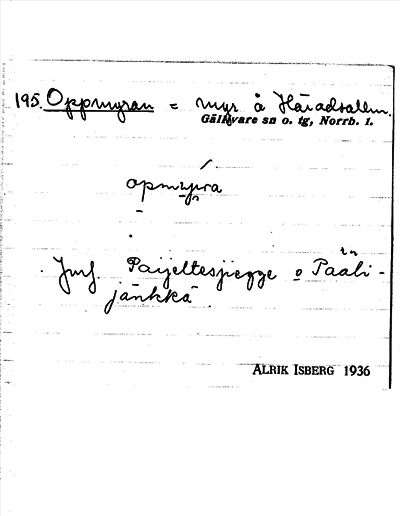 195. Oppmyran = myr å Häradsallm.
Gällivare sn o. tg, Norrb. l.
opmyra
Jmf. Paijeltesjiegge o Paali-
jänkkä.
ALRIK ISBERG 1936